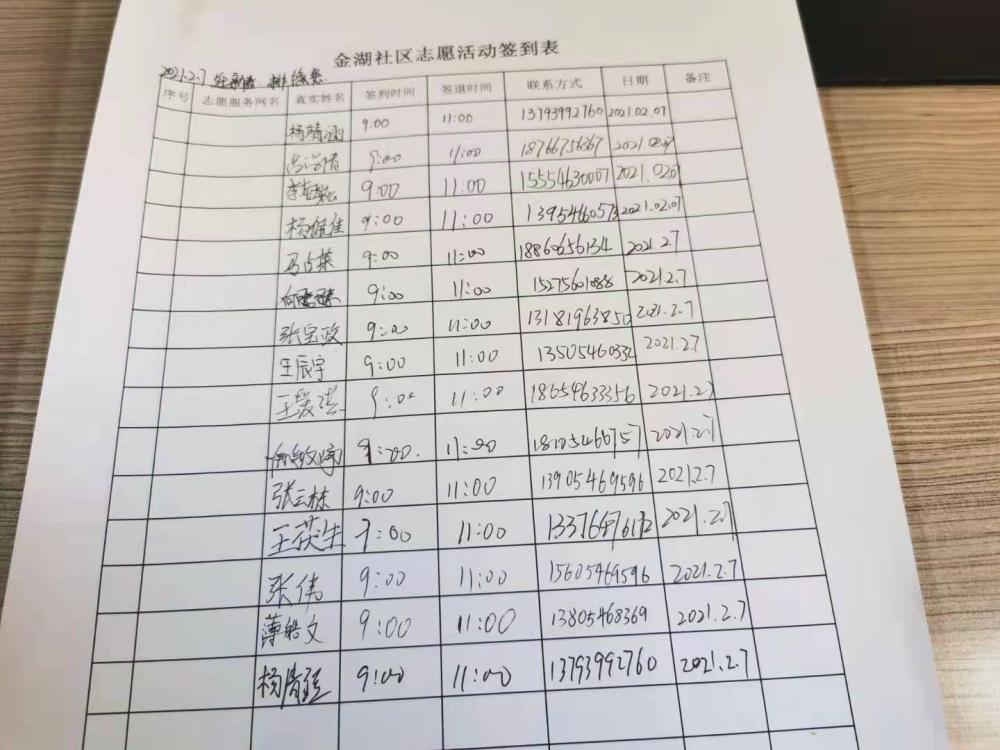 金湖社区志愿活动签到表
2021.2.7
序号 志愿服务网名 真实姓名 签到时间 签退时间 联系方式 日期 备注
9:00 11:00 13793992760 2021.02.07
9:00 11:00 18766756367 2021.02.07
9:00 11:00 15554630007 2021.02.07
9:00 11:00 2021.02.07
马占荣 9:00 11:00 18860656134 2021.2.7
9:00 11:00 15275601088 2021.2.7
张宝政 9:00 11:00 13181963850 2021.2.7
王辰宇 9:00 11:00 13505460332 2021.2.7
9:00 11:00 18654633356 2021.2.7
9:00 11:00 18105466757 2021.2.7
张云栋 9:00 11:00 13905469596 2021.2.7
9:00 11:00 2021.2.7
张伟 9:00 11:00 15605469596 2021.2.7
薄皓文 9:00 11:00 13805468369 2021.2.7
9:00 11:00 13793992760 2021.2.7